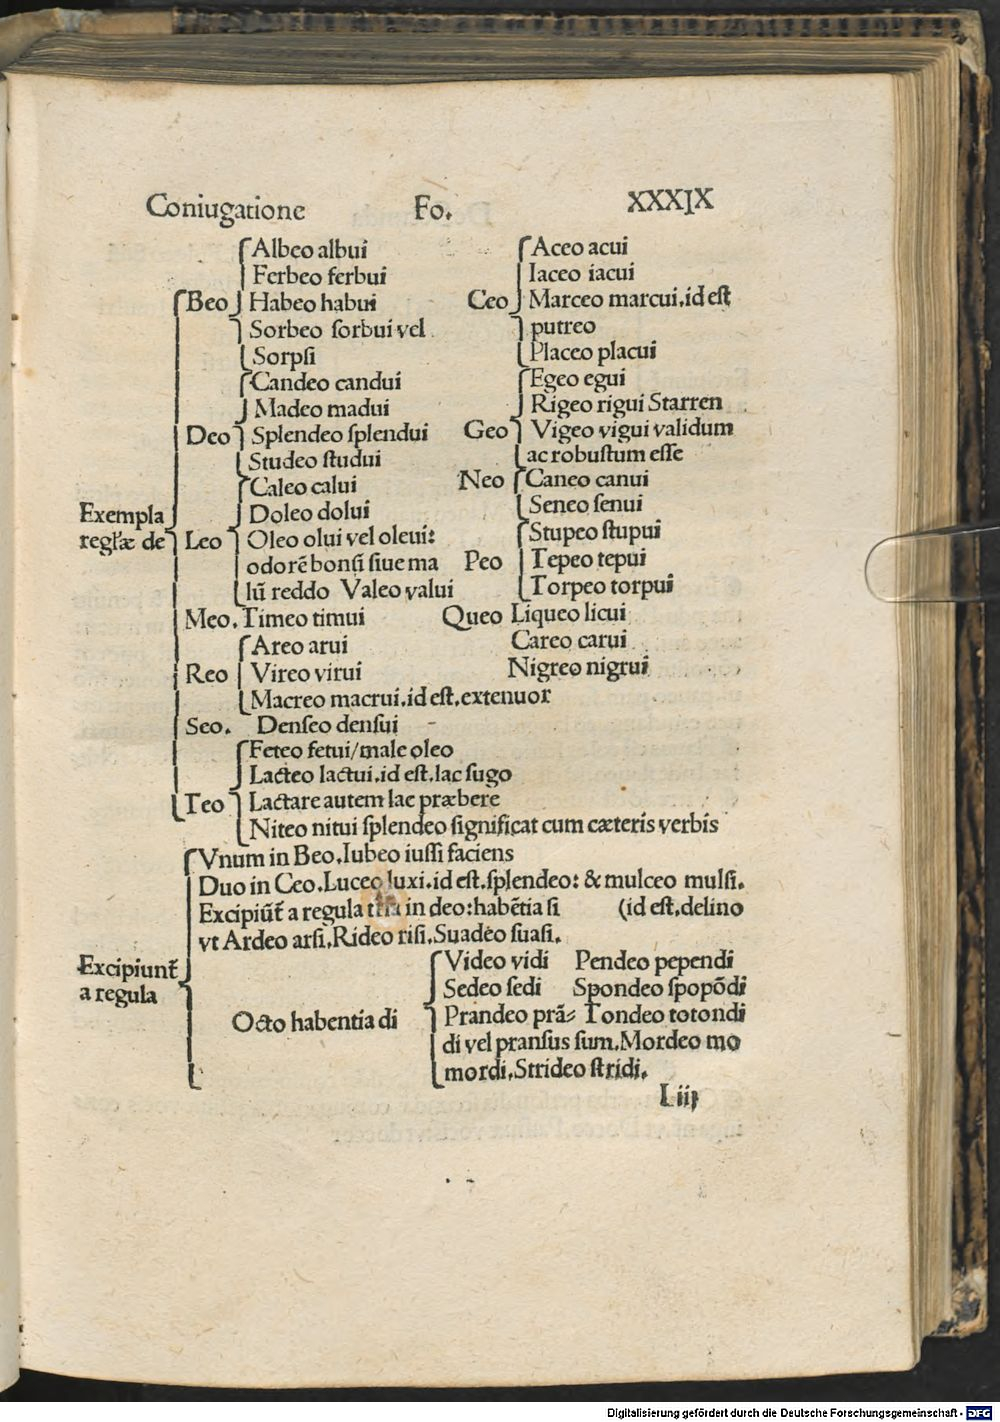 Coniugatione Fo. XXXIX
Albeo albui
Ferbeo ferbui
Beo Habeo habui
Sorbeo ſorbui vel
Sorpſi
Candeo candui
Madeo madui
Deo Splendeo ſplendui
Studeo ſtudui
Caleo calui
Exempla Doleo dolui
regl'æ de Leo Oleo olui vel oleui:
odorē bonū ſiue ma
lū reddo Valeo valui
Meo. Timeo timui
Areo arui
Reo Vireo virui
Macreo macrui.id eſt.extenuor
Seo. Denſeo denſui
Feteo fetui/male oleo
Lacteo lactui.id eſt.lac ſugo
Teo Lactare autem lac præbere
Niteo nitui ſplendeo ſignificat cum cæteris verbis
Aceo acui
Iaceo iacui
Ceo Marceo marcui.id eſt
putreo
Placeo placui
Egeo egui
Rigeo rigui Starren
Geo Vigeo vigui validum
ac robuſtum eſſe
Neo Caneo canui
Seneo ſenui
Stupeo ſtupui
Peo Tepeo tepui
Torpeo torpui
Queo Liqueo licui
Careo carui
Nigreo nigrui
Vnum in Beo.Iubeo iuſſi faciens
Duo in Ceo.Luceo luxi.id eſt.ſplendeo: & mulceo mulſi.
Excipiūt a regula tria in deo:habētia ſi (id eſt.delino
vt Ardeo arſi.Rideo riſi.Suadeo ſuaſi.
Excipiunt
a regula
Octo habentia di
Video vidi Pendeo pependi
Sedeo ſedi Spondeo ſpopōdi
Prandeo prā= Tondeo totondi
di vel pranſus ſum.Mordeo mo
mordi.Strideo ſtridi.
Liij
Digitalisierung gefördert durch die Deutsche Forschungsgemeinschaft - DFG